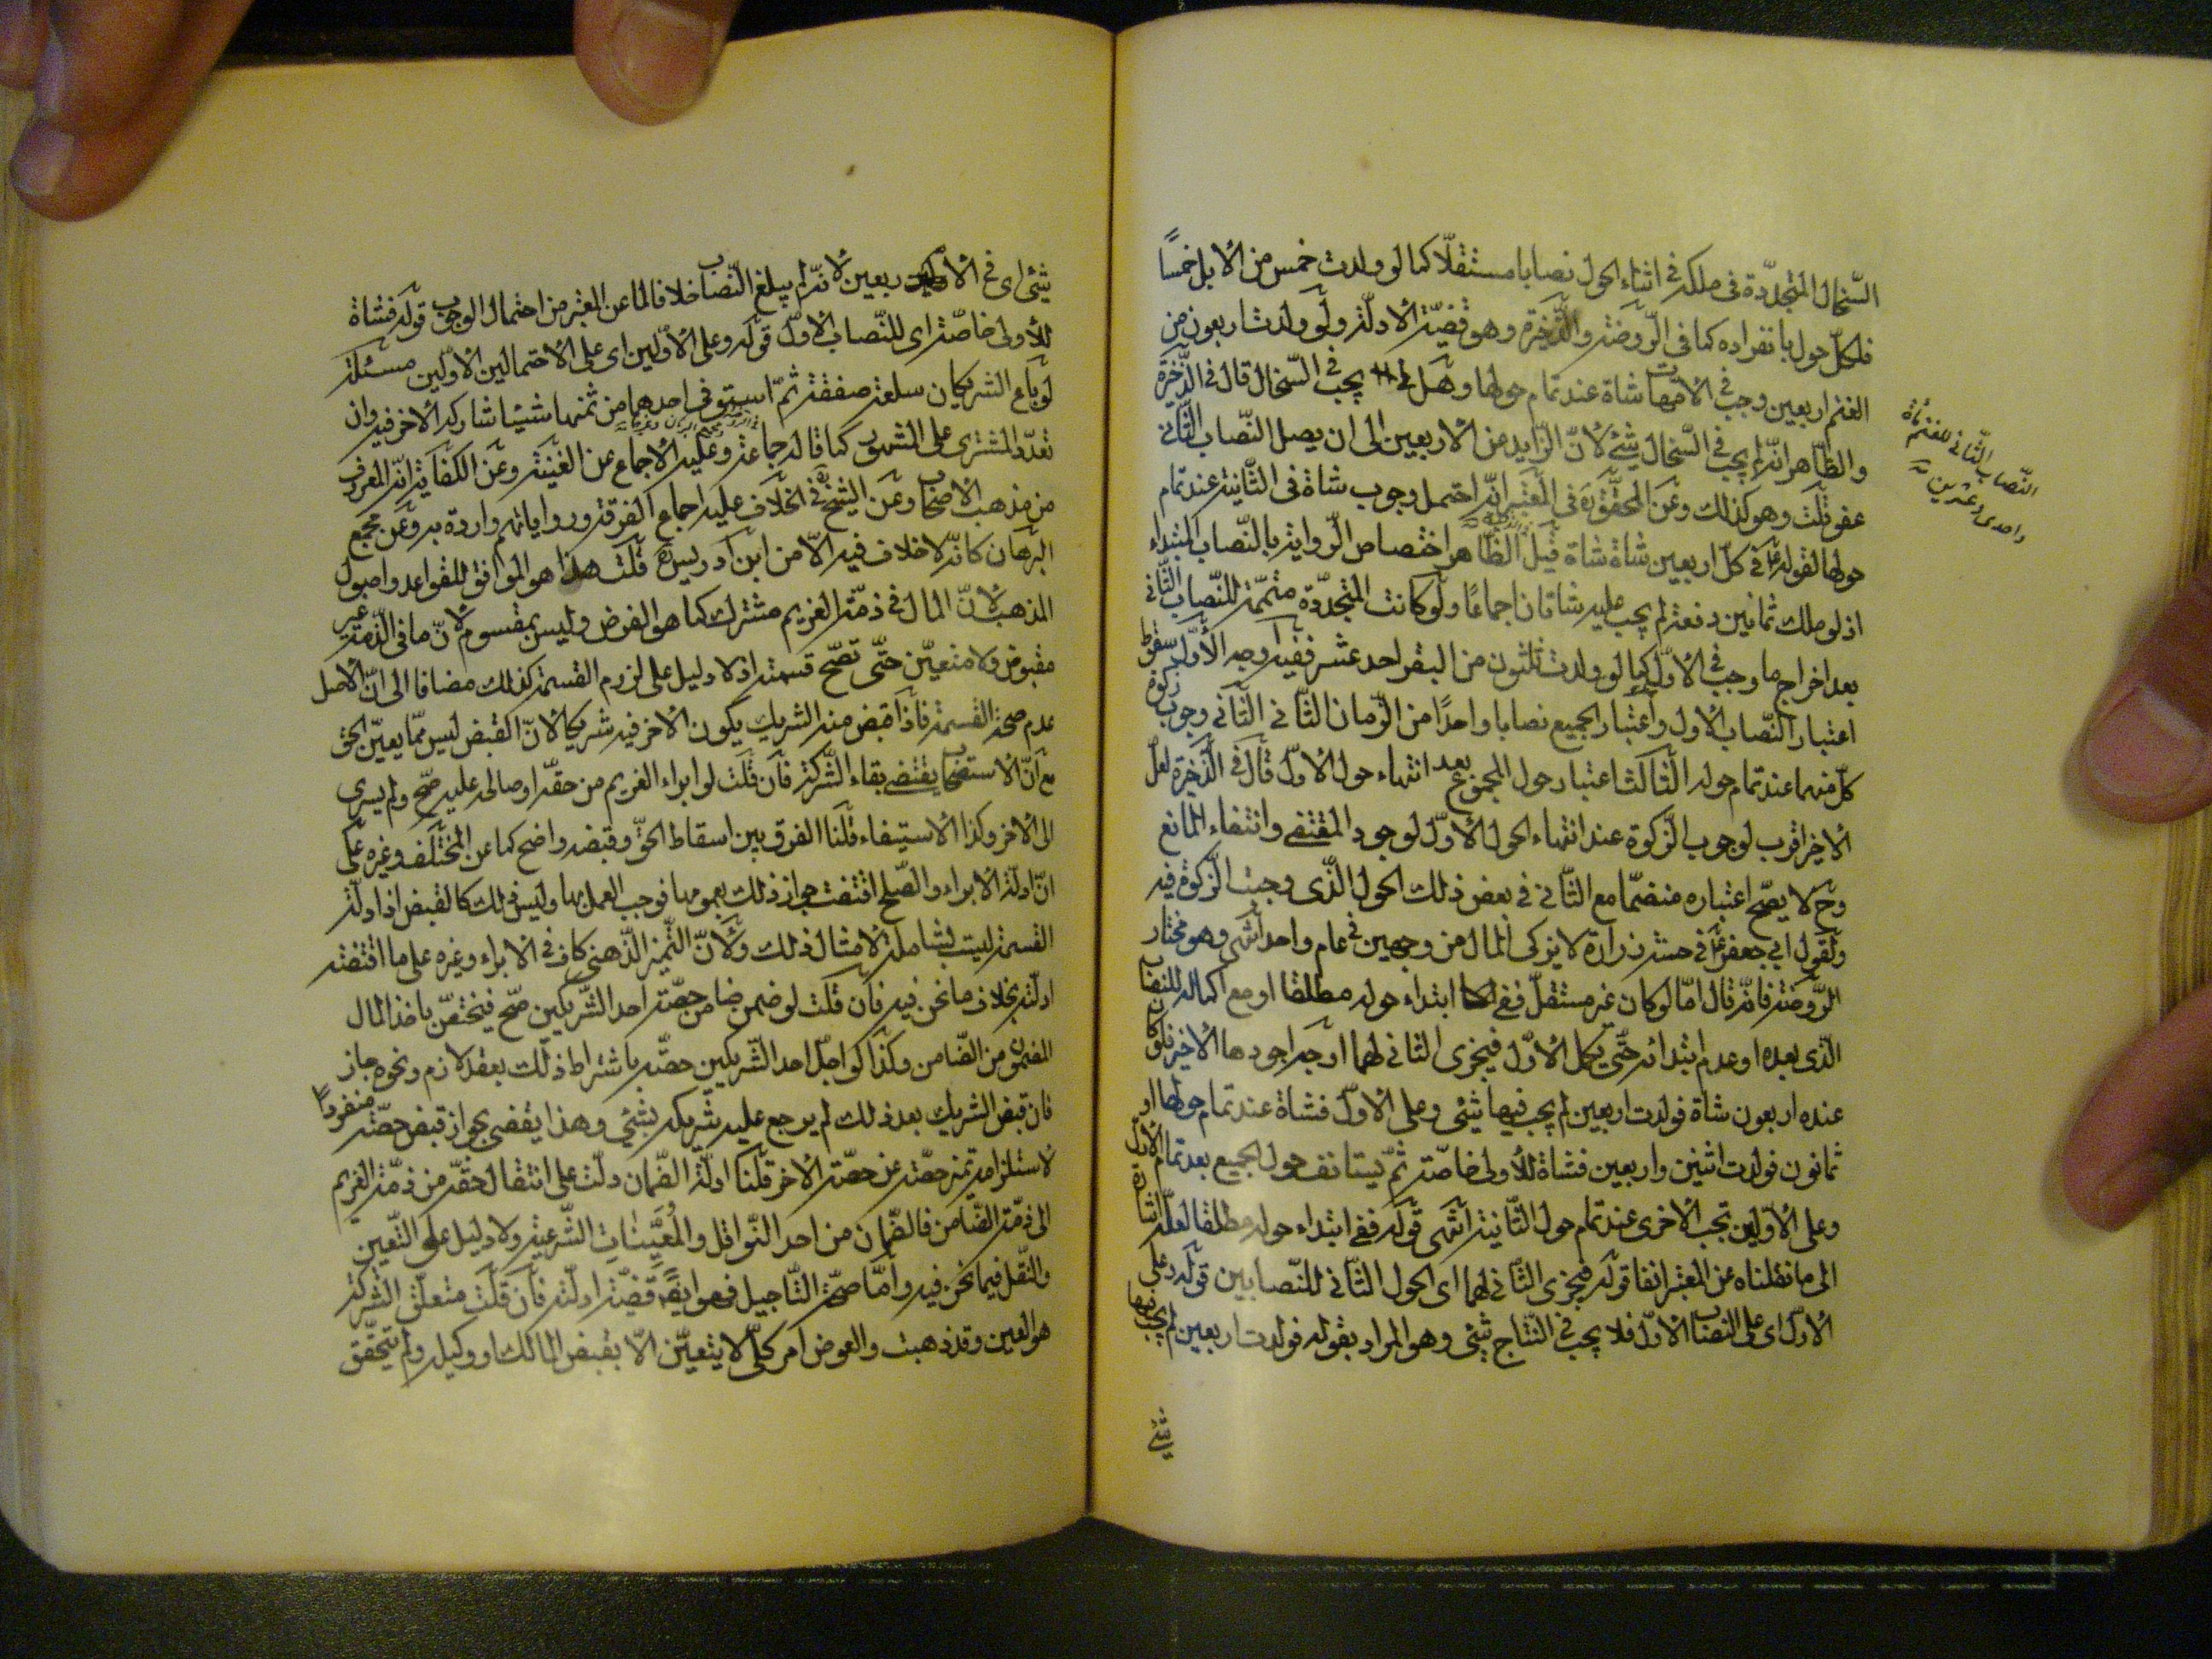 السّخال المتجدّدة فى ملكه فى اثناء الحول نصابا مستقلّا كما لو ولدت خمس من الابل خمسًا
فلكلّ حول بانفراده كما فى الرّوضة والذّخيرة وهو قضيّة الادلّة ولو ولدت اربعون من
الغنم اربعين وجب فى الامّهات شاة عند تمام حولها وهل يجب فى السّخال قال فى الذّخيرة
والظّاهر انّه لم يجب فى السّخال شئ لانّ الزّايد من الاربعين الى ان يصل النّصاب الثّانى
عفو قلت وهو كذلك وعن المحقّق ره فى المعتبر انّه احتمل وجوب شاة فى الثّانية عند تمام
حولها لقوله ع فى كلّ اربعين شاة شاة قيل الظّاهر اختصاص الرّواية بالنّصاب المبتداء
اذ لو ملك ثمانين دفعة لم يجب عليه شاتان اجماعًا ولو كانت المتجدّدة متمّمة للنّصاب الثّانى
بعد اخراج ما وجب فى الاوّل كما لو ولدت ثلثون من البقر احد عشر ففيه اوجه الاوّل سقوط
اعتبار النّصاب الاول واعتبار الجميع نصابا واحدًا من الزّمان الثّانى الثّانى وجوب زكوة
كلّ منهما عند تمام حوله الثّالث اعتبار حول المجموع بعد انتهاء حول الاوّل قال فى الذّخيرة لعلّ
الاخير اقرب لوجوب الزّكوة عند انتهاء الحول الاوّل لوجود المقتضى وانتفاء المانع
وح لا يصحّ اعتباره منضمّا مع الثّانى فى بعض ذلك الحول الّذى وجبت الزّكوة فيه
ولقول ابى جعفر ع فى حسنة زرارة لا يزكى المال من وجهين فى عام واحد انتهى وهو مختار
الرّوضة فانّه قال امّا لو كان غير مستقلّ ففى ابتداء حوله مطلقا او مع اكماله للنصاب
الّذى بعده او عدم ابتدائه حتّى يكمل الاوّل فيجزى الثّانى لهما اوجه اجودها الاخير فلو كان
عنده اربعون شاة فولدت اربعين لم يجب فيها شئى وعلى الاوّل فشاة عند تمام حولها او
ثمانون فولدت اثنين واربعين فشاة للأولى خاصّة ثمّ يستانف حول الجميع بعد تمام الاول
وعلى الاوّلين تجب الاخرى عند تمام حول الثّانية انتهى قوله ففى ابتداء حوله مطلقا لعلّه اشارة
الى ما نقلناه عن المعتبر انفا قوله فيجزى الثّانى لهما اى الحول الثّانى للنّصابين قوله وعلى
الاوّل اى على النصاب الاوّل فلا يجب فى النّتاج شئى وهو المراد بقوله فولدت اربعين لم يجب فيها
شئى
النّصاب الثّانى للغنم مأة
واحدى وعشرين
شئى اى فى الاربعين لانّه لم يبلغ النّصاب خلافا لما عن المعتبر من احتمال الوجوب قوله فشاة
للأولى خاصّة اى للنّصاب الاوّل قوله وعلى الاوّلين اى على الاحتمالين الاوّلين مسئلة
لو باع الشريكان سلعة صفقة ثمّ استوفى احدهما من ثمنها شيئا شاركه الاخر فيه وان
تعدّد المشترى على المشهور كما قاله جماعة وعليه الاجماع عن الغنية وعن الكفاية انّه المعروف
من مذهب الاصحاب وعن الشيخ ره فى الخلاف عليه اجماع الفرقة ورواياتهم واردة به وعن مجمع
البرهان كانّه لا خلاف فيه الّا من ابن ادريس ره قلت هذا هو الموافق للقواعد واصول
المذهب لانّ المال فى ذمّة الغريم مشترك كما هو الفرض وليس بمقسوم لانّ ما فى الذّمّة غير
مقبوض ولا متعيّن حتّى تصّح قسمته اذ لا دليل على لزوم القسمة كذلك مضافا الى انّ الاصل
عدم صحة القسمة فاذا قبض منه الشريك يكون الاخر فيه شريكا لانّ القبض ليس ممّا يعيّن الحق
مع انّ الاستصحاب يقتضى بقاء الشّركة فان قلت لو ابراء الغريم من حقّه او صالحه عليه صّح ولم يسرى
الى الاخر وكذا الاستيفاء قلنا الفرق بين اسقاط الحقّ وقبضه واضح كما عن المختلف وغيره على
انّ ادلّة الابراء والصّلح اقتضت جواز ذلك بعمومها فوجب العمل بها وليس ذلك كالقبض اذ ادلّة
القسمة ليست بشاملة لامثال ذلك ولانّ التّميز الذّهنى كاف فى الابراء وغيره على ما اقتضته
ادلّته بخلاف ما نحن فيه فان قلت لو ضمن ضامن حصّة احد الشّريكين صّح فيختصّ باخذ المال
المضمون من الضّامن وكذا لو اجّل احد الشّريكين حصّته باشتراط ذلك بعقد لازم ونحوه جاز
فان قبض الشريك بعد ذلك لم يرجع عليه شريكه بشئى وهذا يقضى بجواز قبض حصّته منفردًا
لاستلزامه تميز حصّته عن حصّة الاخر قلنا ادلّة الضّمان دلّت على انتقال حقّه من ذمّة الغريم
الى ذمّة الضّامن فالضّمان من احد النّواقل والمُعَيِّنات الشّرعيّة ولا دليل على التّعين
والنّقل فيما نحن فيه وامّا صحّة التّاجيل فهو ايضًا قضيّة ادلّته فان قلت متعلّق الشركة
هو العين وقد ذهبت والعوض امر كلّى لا يتعيّن الّا بقبض المالك او وكيله ولم يتحقّق